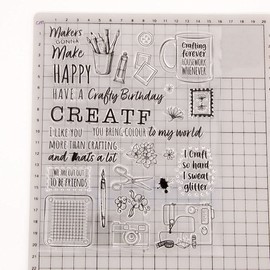 Makers
GONNA
Make
HAPPY
HAVE A Crafty Birthday
CREATE
I LIKE YOU
MORE THAN CRAFTING
and thats a lot
YOU BRING COLOUR to my world
Crafting
forever
HOUSEWORK
WHENEVER
WE ARE CUT OUT
TO BE FRIENDS
I Craft
so hard
I sweat
glitter